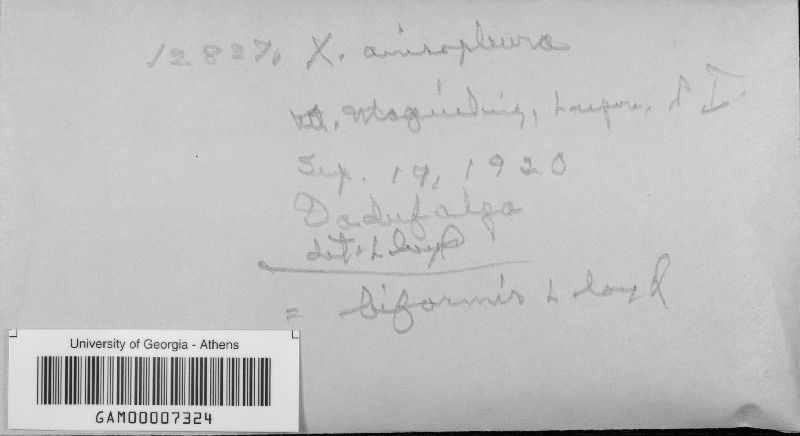 12827, X. anisopleura
Mt. Maquiling, Laguna, P I.
Sep. 19, 1920
det. Lloyd
= biformis Lloyd
University of Georgia - Athens
GAM00007324